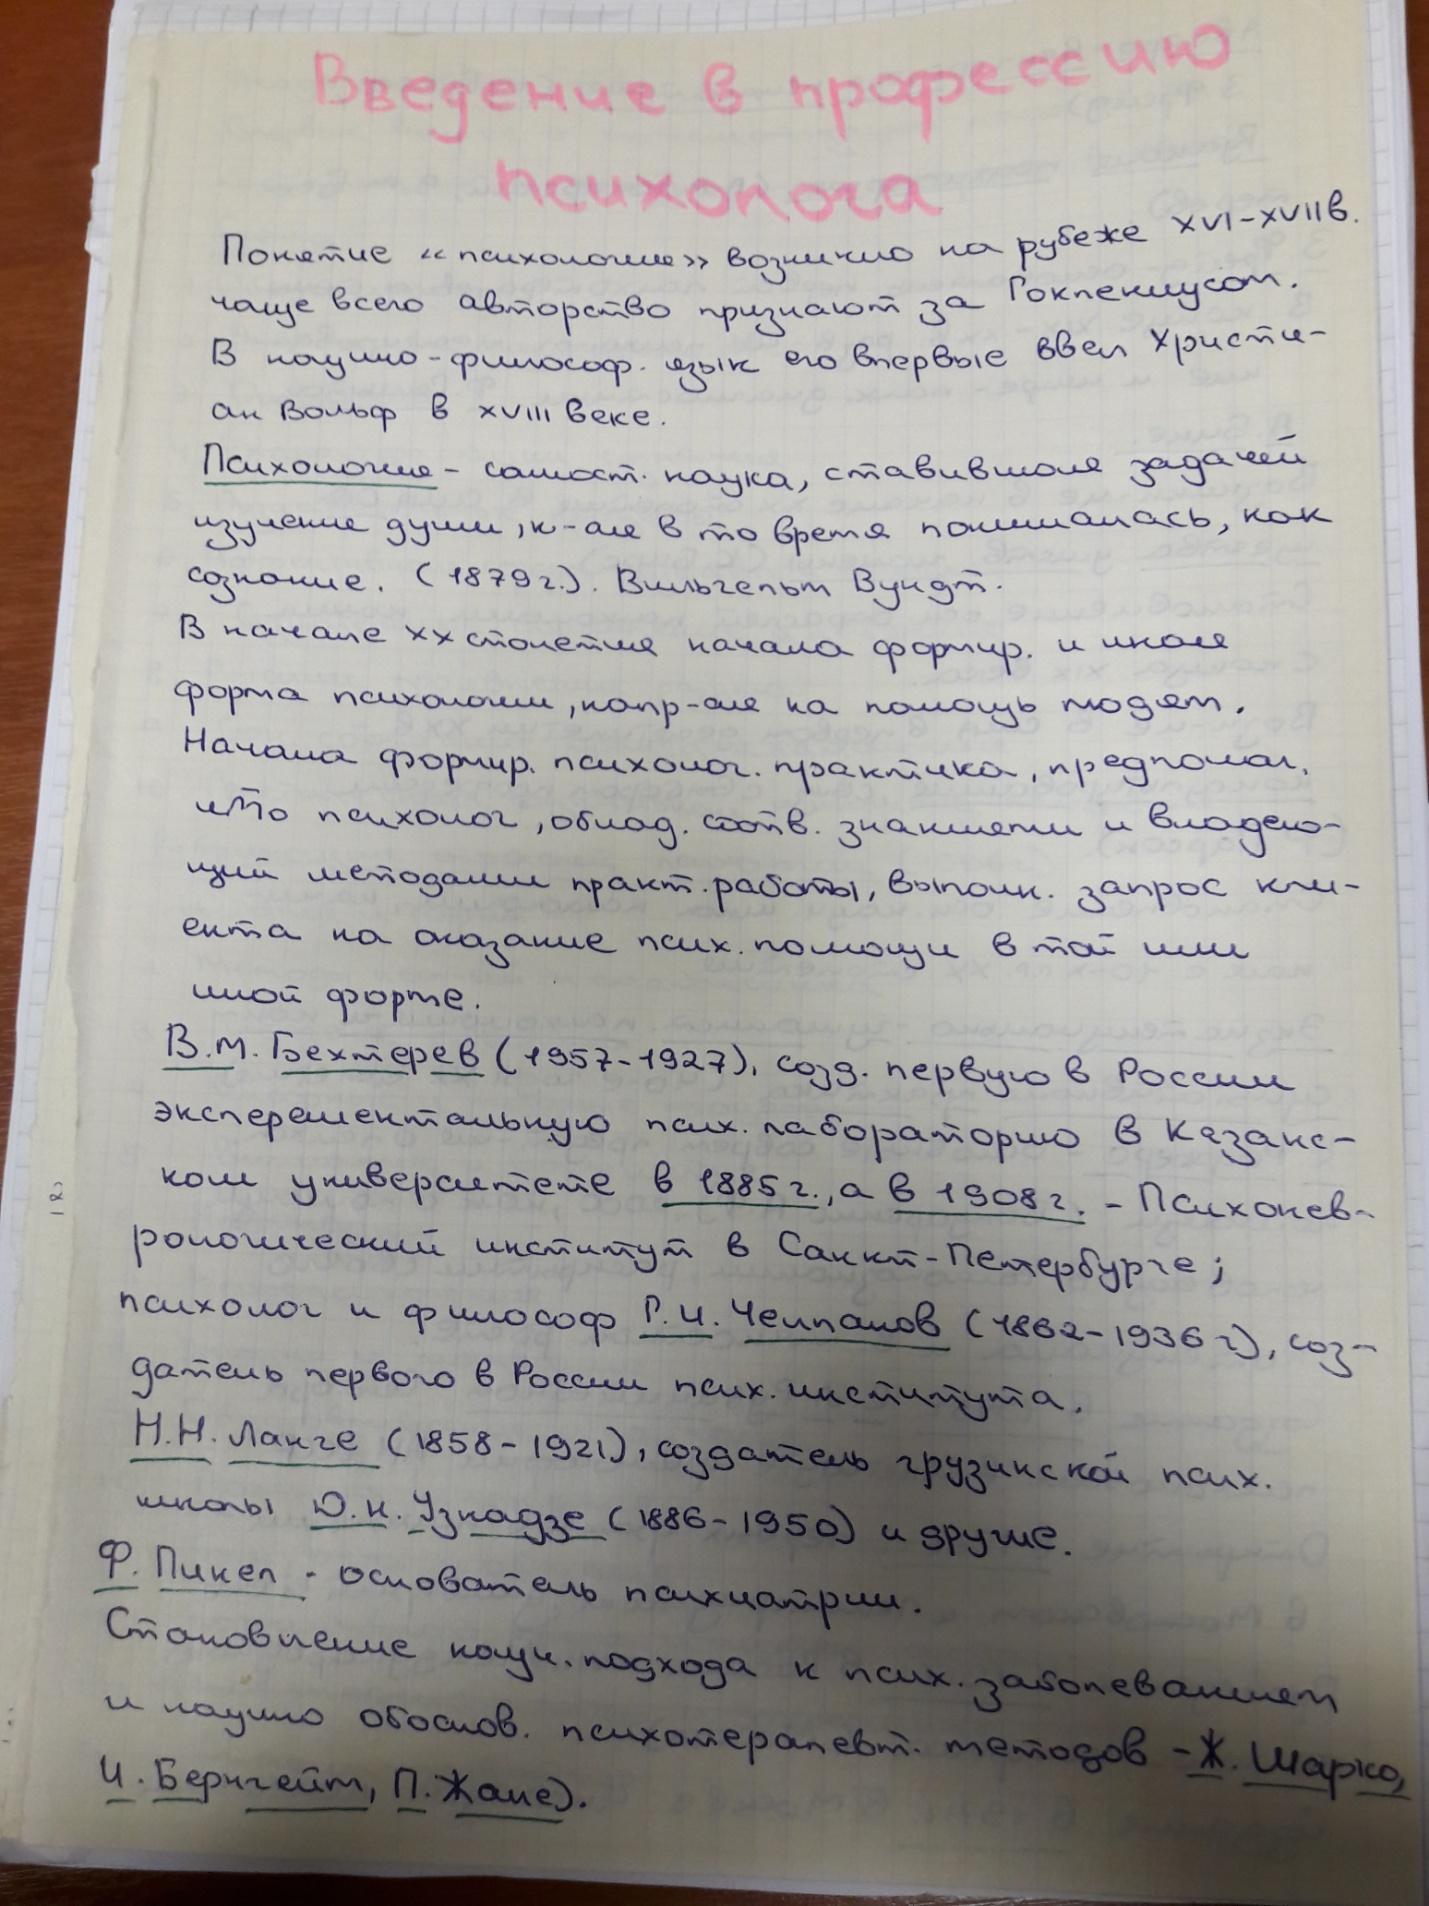 Введение в профессию
психолога
Понятие «психология» возникло на рубеже XVI-XVIIв.
чаще всего авторство признают за Гоклениусом.
В научно-философ. язык его впервые ввел Христи-
ан Вольф в XVIII веке.
Психология - самост. наука, ставившая задачей
изучение души, к-ая в то время понималась, как
сознание. (1879г.). Вильгельм Вундт.
В начале XX столетия начала формир. и иная
форма психологии, напр-ая на помощь людям.
Начала формир. психолог. практика, предполаг.
что психолог, облад. соотв. знаниями и владею-
щий методами практ. работы, выполн. запрос кли-
ента на оказание псих. помощи в той или
иной форме.
В.М. Бехтерев (1957-1927), созд. первую в России
эксперементальную псих. лабораторию в Казанс-
ком университете в 1885г., а в 1908г. - Психонев-
рологический институт в Санкт-Петербурге;
психолог и философ Г.И. Челпанов (1862-1936г), соз-
датель первого в России псих. института.
Н.Н. Ланге (1858-1921), создатель грузинской псих.
школы Ю.Н. Узнадзе (1886-1950) и другие.
Ф. Пинел - основатель психиатрии.
Становление научн. подхода к псих. заболеваниям
и научно обоснов. психотерапевт. методов - Ж. Шарко,
И. Бернгейм, П. Жане).